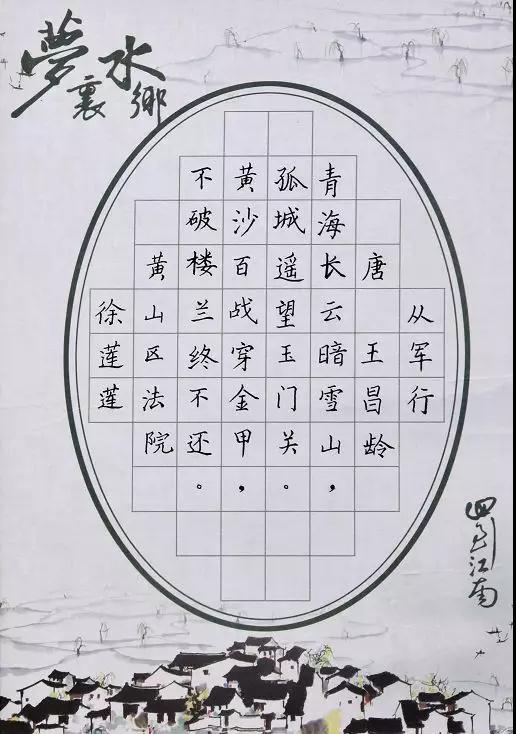 夢裏水鄉
从军行
唐 王昌龄
青海长云暗雪山，
孤城遥望玉门关。
黄沙百战穿金甲，
不破楼兰终不还。
黄山区法院
徐莲莲
江南